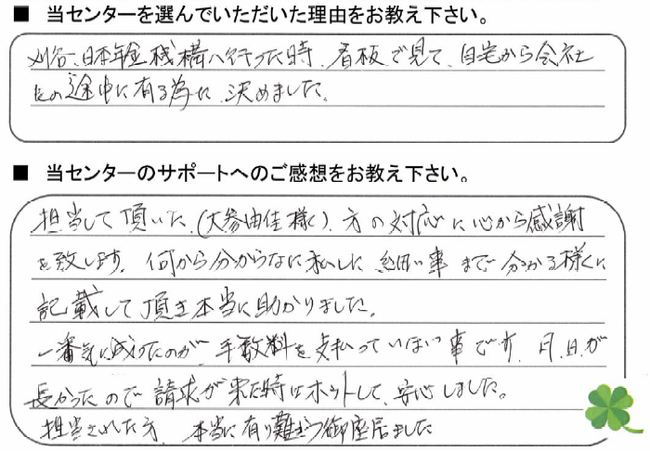 ■ 当センターを選んでいただいた理由をお教え下さい。
刈谷、日本年金機構へ行った時、看板で見て、自宅から会社
との途中に有る為に、決めました。
■ 当センターのサポートへのご感想をお教え下さい。
担当して頂いた、(大参由佳様)、方の対応に心から感謝
を致します。何から分からなに私しに細い事まで分かる様に
記載して頂き本当に助かりました。
一番気に成ったのが、手数料を支払っていない事です、月、日が
長かったので請求が来た時はホットして、安心しました。
担当された方、本当に有り難とう御座居ました